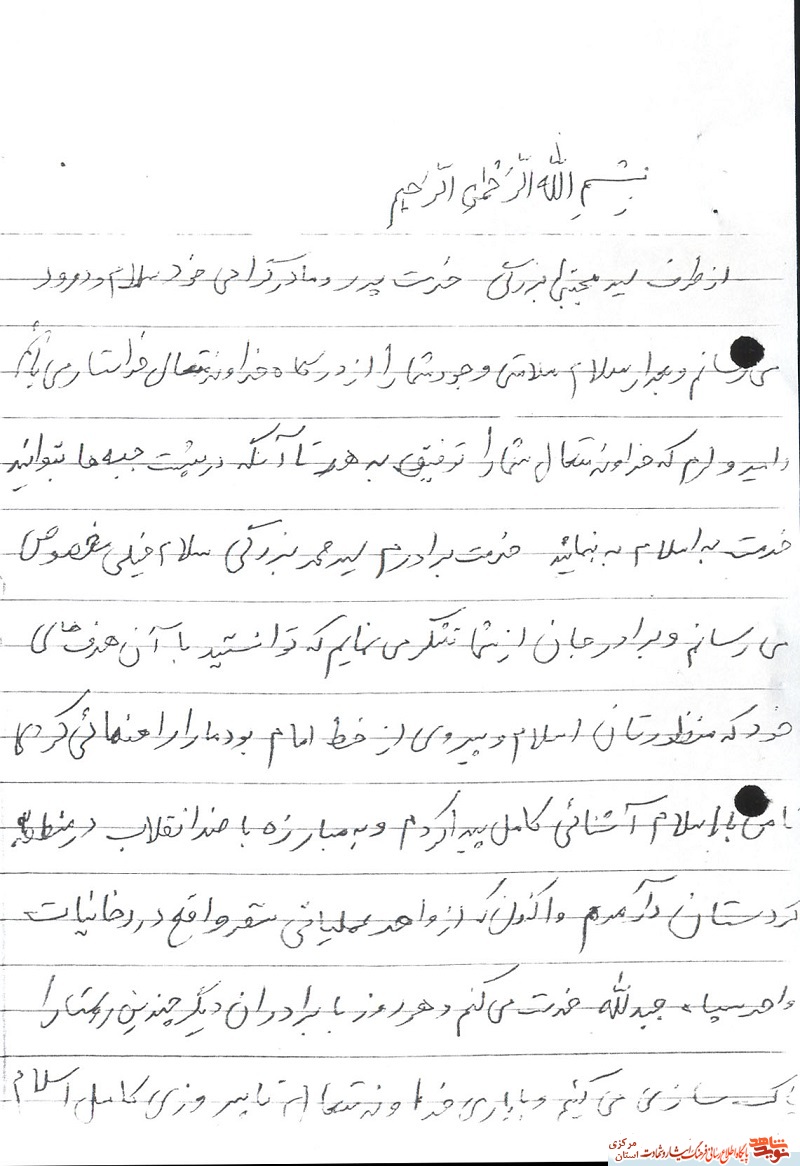 بِسْمِ اللهِ الرَّحْمنِ الرَّحيم
از طرف سید مجتبی بزرگی خدمت پدر و مادر گرامی خود سلام و درود
می رسانم و بعد از سلام سلامتی وجود شما را از درگاه خداوند متعال خواستار می باشم
و امید و ارم که خداوند متعال شما را توفیق به دهد تا آنکه در پشت جبهه ها بتوانید
خدمت به اسلام به نمائید خدمت برادرم سید محمد بزرگی سلام خیلی مخصوص
می رسانم و برادر جان از شما تشکر می نمایم که توانستید با آن هدف های
خود که منظورتان اسلام و پیروی از خط امام بود ما را راهنمائی کردی
تا من با اسلام آشنائی کامل پیدا کردم و به مبارزه با ضد انقلاب در منطقه
کردستان در آمدم و اکنون که از واحد عملیاتی سقر واقع در دخانیات
واحد سپاه جندالله خدمت می کنم و هر روز با برادران دیگر چندین روستا را
پاک سازی می کنیم و با یاری خداوند متعال تا پیروزی کامل اسلام
نوید شاهد پایگاه اطلاع رسانی فرهنگ ایثار و شهادت استان مرکزی